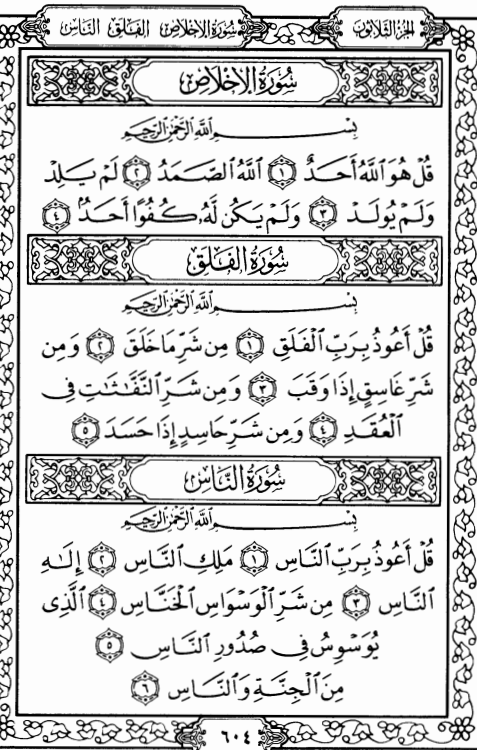 الجزء الثلاثون
سورة الإخلاص الفلق الناس
سُورَةُ الإِخْلَاصِ
بِسْمِ اللَّهِ الرَّحْمَٰنِ الرَّحِيمِ
قُلْ هُوَ ٱللَّهُ أَحَدٌ ١ ٱللَّهُ ٱلصَّمَدُ ٢ لَمْ يَلِدْ
وَلَمْ يُولَدْ ٣ وَلَمْ يَكُن لَّهُۥ كُفُوًا أَحَدٌۢ ٤
سُورَةُ الفَلَقِ
بِسْمِ اللَّهِ الرَّحْمَٰنِ الرَّحِيمِ
قُلْ أَعُوذُ بِرَبِّ ٱلْفَلَقِ ١ مِن شَرِّ مَا خَلَقَ ٢ وَمِن
شَرِّ غَاسِقٍ إِذَا وَقَبَ ٣ وَمِن شَرِّ ٱلنَّفَّٰثَٰتِ فِى
ٱلْعُقَدِ ٤ وَمِن شَرِّ حَاسِدٍ إِذَا حَسَدَ ٥
سُورَةُ النَّاسِ
بِسْمِ اللَّهِ الرَّحْمَٰنِ الرَّحِيمِ
قُلْ أَعُوذُ بِرَبِّ ٱلنَّاسِ ١ مَلِكِ ٱلنَّاسِ ٢ إِلَٰهِ
ٱلنَّاسِ ٣ مِن شَرِّ ٱلْوَسْوَاسِ ٱلْخَنَّاسِ ٤ ٱلَّذِى
يُوَسْوِسُ فِى صُدُورِ ٱلنَّاسِ ٥
مِنَ ٱلْجِنَّةِ وَٱلنَّاسِ ٦
٦٠٤